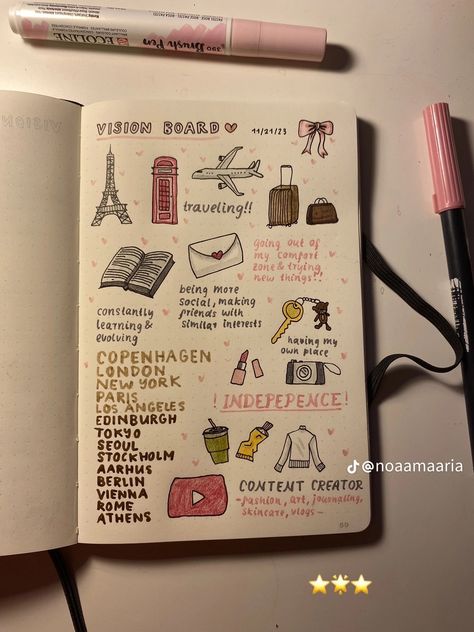 ECOLINE Brush Pen 390
VISION BOARD
11/21/23
traveling!!
going out of
my comfort
zone & trying
new things!!
being more
social, making
friends with
similar interests
constantly
learning &
evolving
having my
own place
COPENHAGEN
LONDON
NEW YORK
PARIS
LOS ANGELES
EDINBURGH
TOKYO
SEOUL
STOCKHOLM
AARHUS
BERLIN
VIENNA
ROME
ATHENS
! INDEPEPENCE!
CONTENT CREATOR
-fashion, art, journaling,
skincare, vlogs-
@noaamaaria